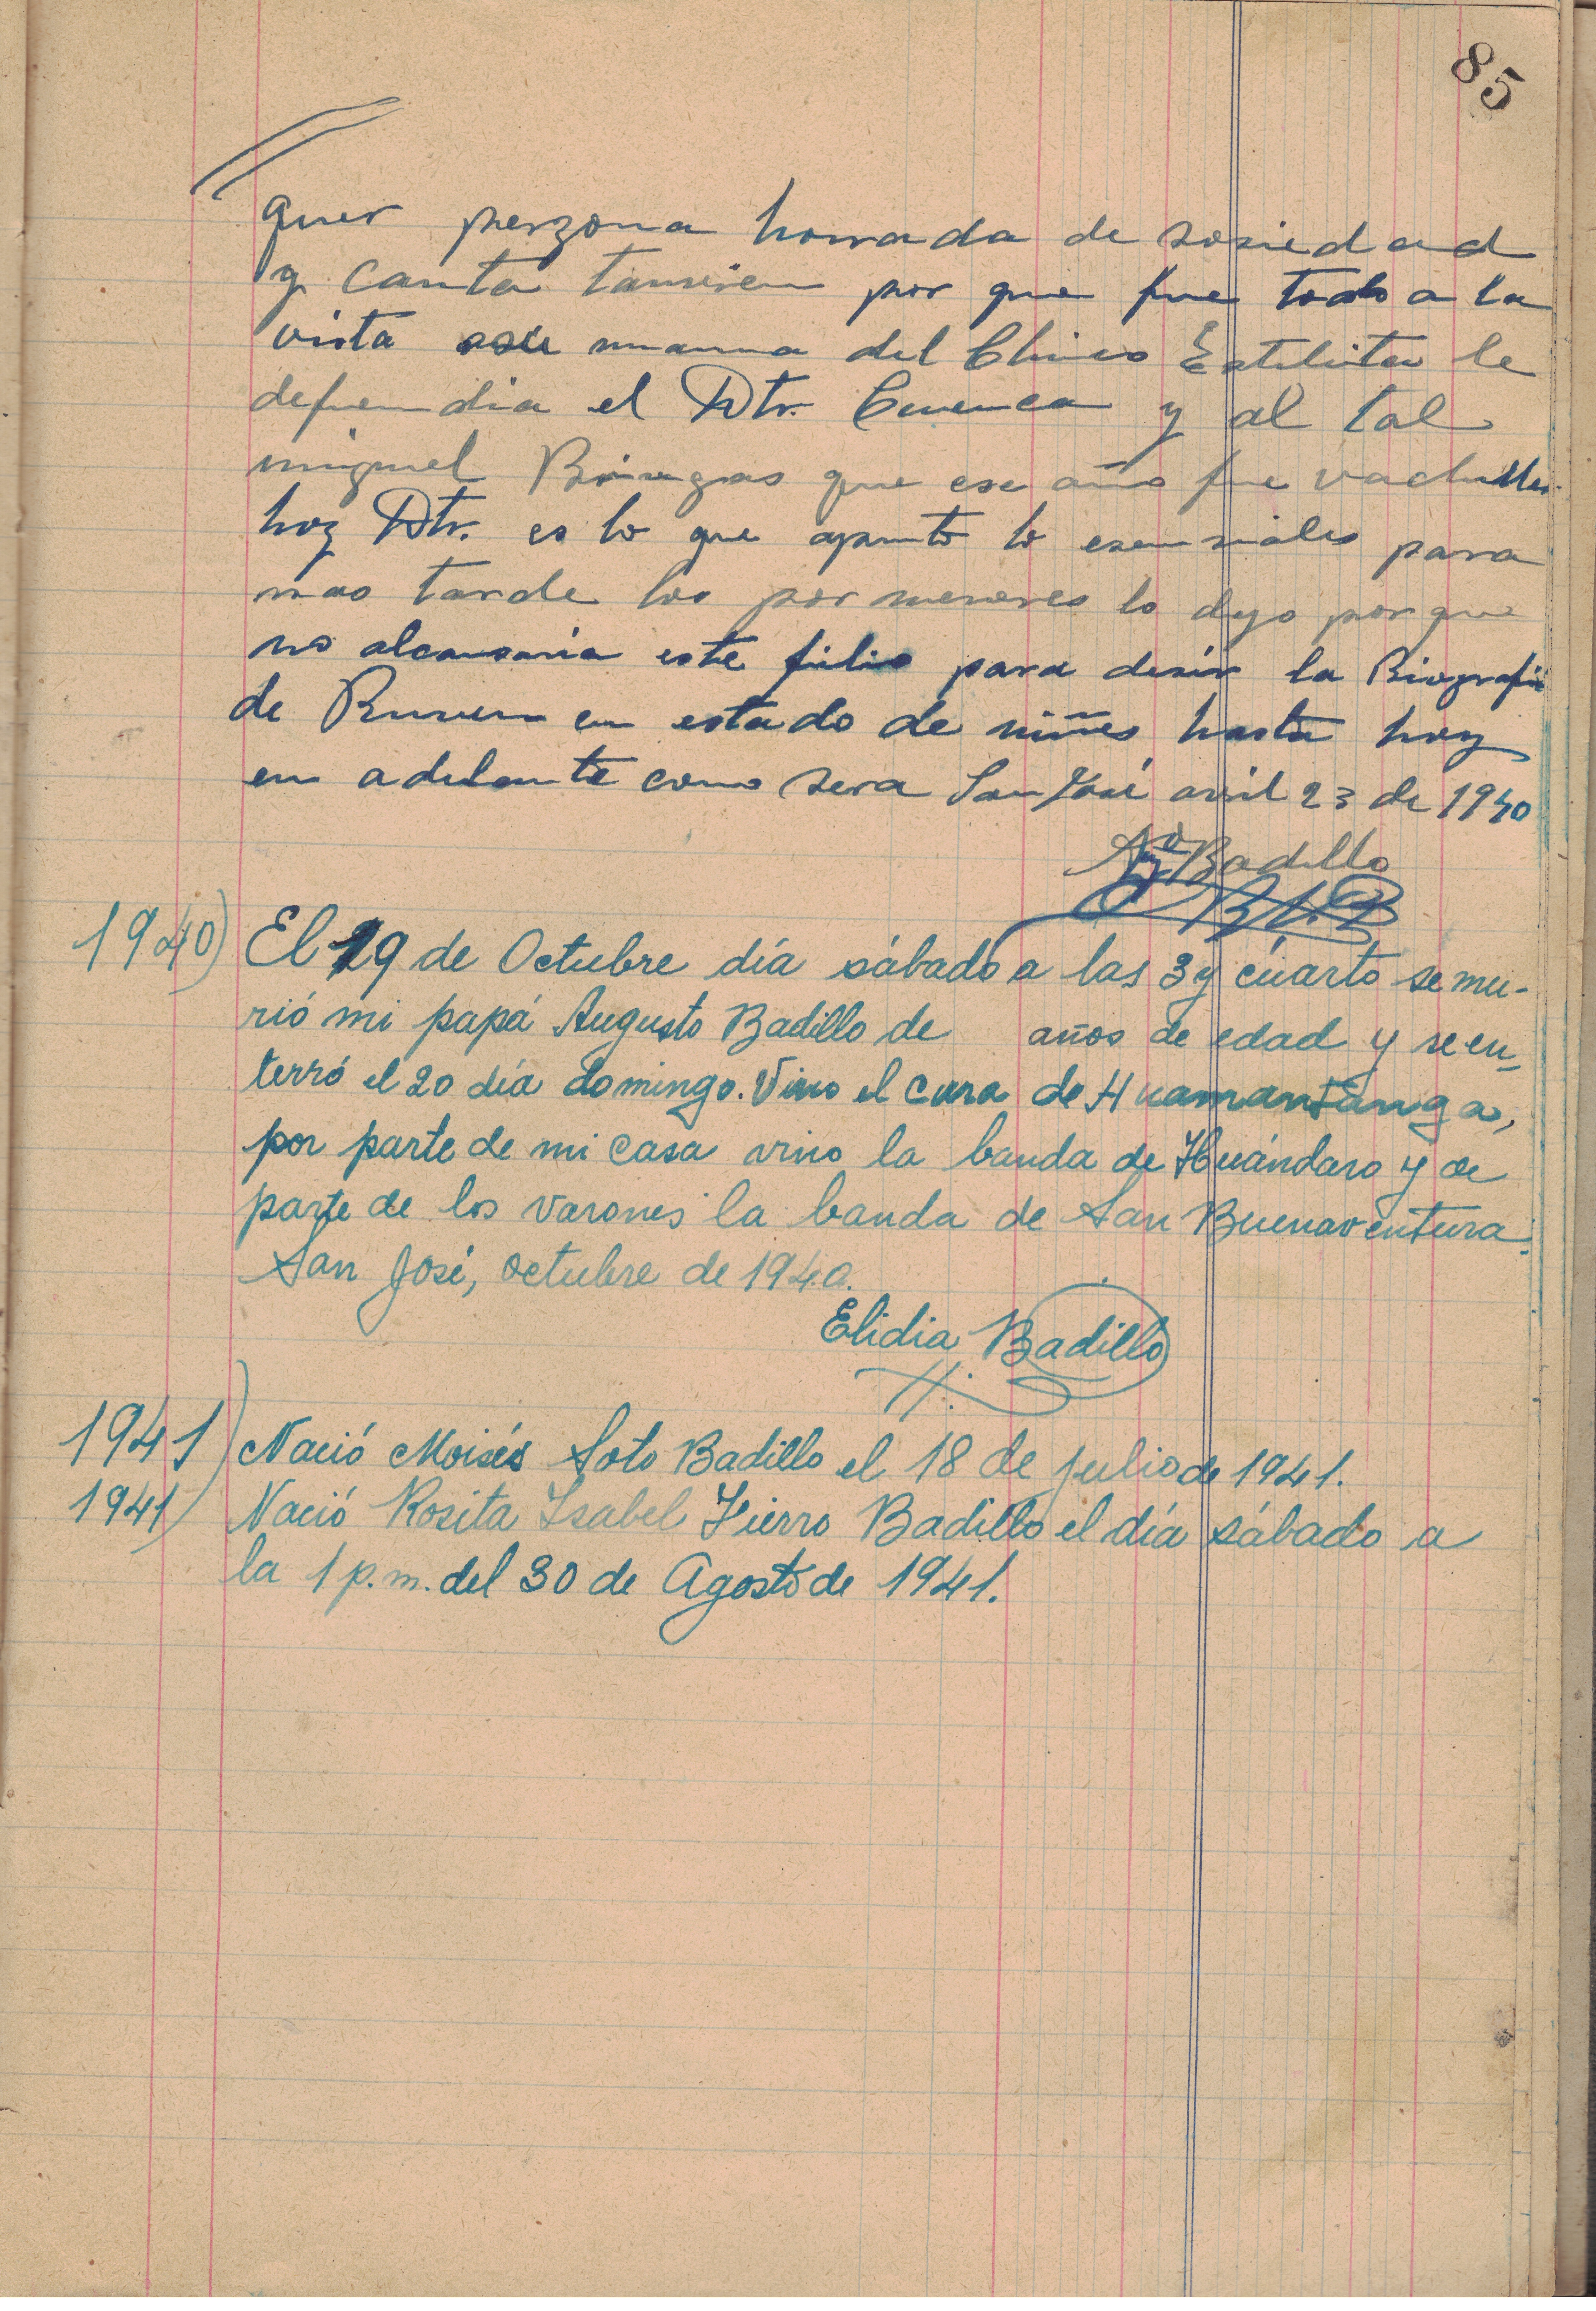 85
quer perzona honrada de sosiedad
y Canta tanvien por que fue todo a la
vista asu mama del Chino Estelita le
defendia el Dtr. Cuenca y al tal
miguel que ese año fue vachiller
hoy Dtr. es lo que apunto lo esensiales para
mas tarde los por menores lo dejo por que
no alcansaria este folio para desir la Biografia
de Ruven en estado de niñes hasta hoy
en adelante como sera San José avril 23 de 1940
Badillo
1940) El 19 de Octubre día sábado a las 3 y cuarto se mu-
rió mi papá Augusto Badillo de años de edad y se en-
terró el 20 día domingo. Vino el cura de Huamantanga,
por parte de mi casa vino la banda de Huándaro y de
parte de los varones la banda de San Buenaventura.
San José, octubre de 1940.
Elidia Badillo
1941) Nació Moisés Soto Badillo el 18 de julio de 1941.
1941) Nació Rosita Isabel Fierro Badillo el día sábado a
la 1 p.m. del 30 de Agosto de 1941.